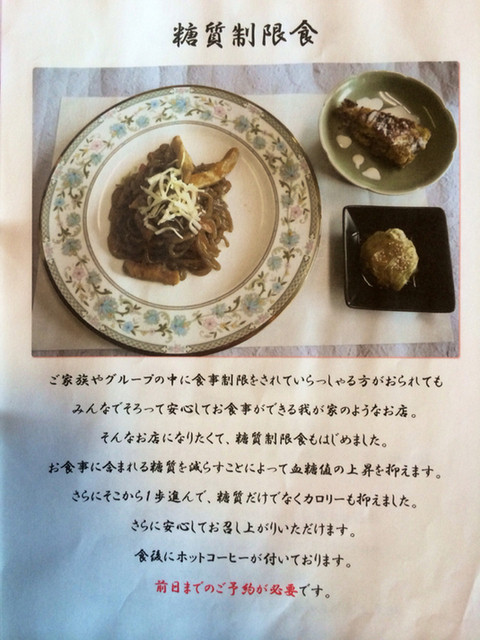 糖質制限食
ご家族やグループの中に食事制限をされていらっしゃる方がおられても
みんなでそろって安心してお食事ができる我が家のようなお店。
そんなお店になりたくて、糖質制限食もはじめました。
お食事に含まれる糖質を減らすことによって血糖値の上昇を抑えます。
さらにそこから1歩進んで、糖質だけでなくカロリーも抑えました。
さらに安心してお召し上がりいただけます。
食後にホットコーヒーが付いております。
前日までのご予約が必要です。